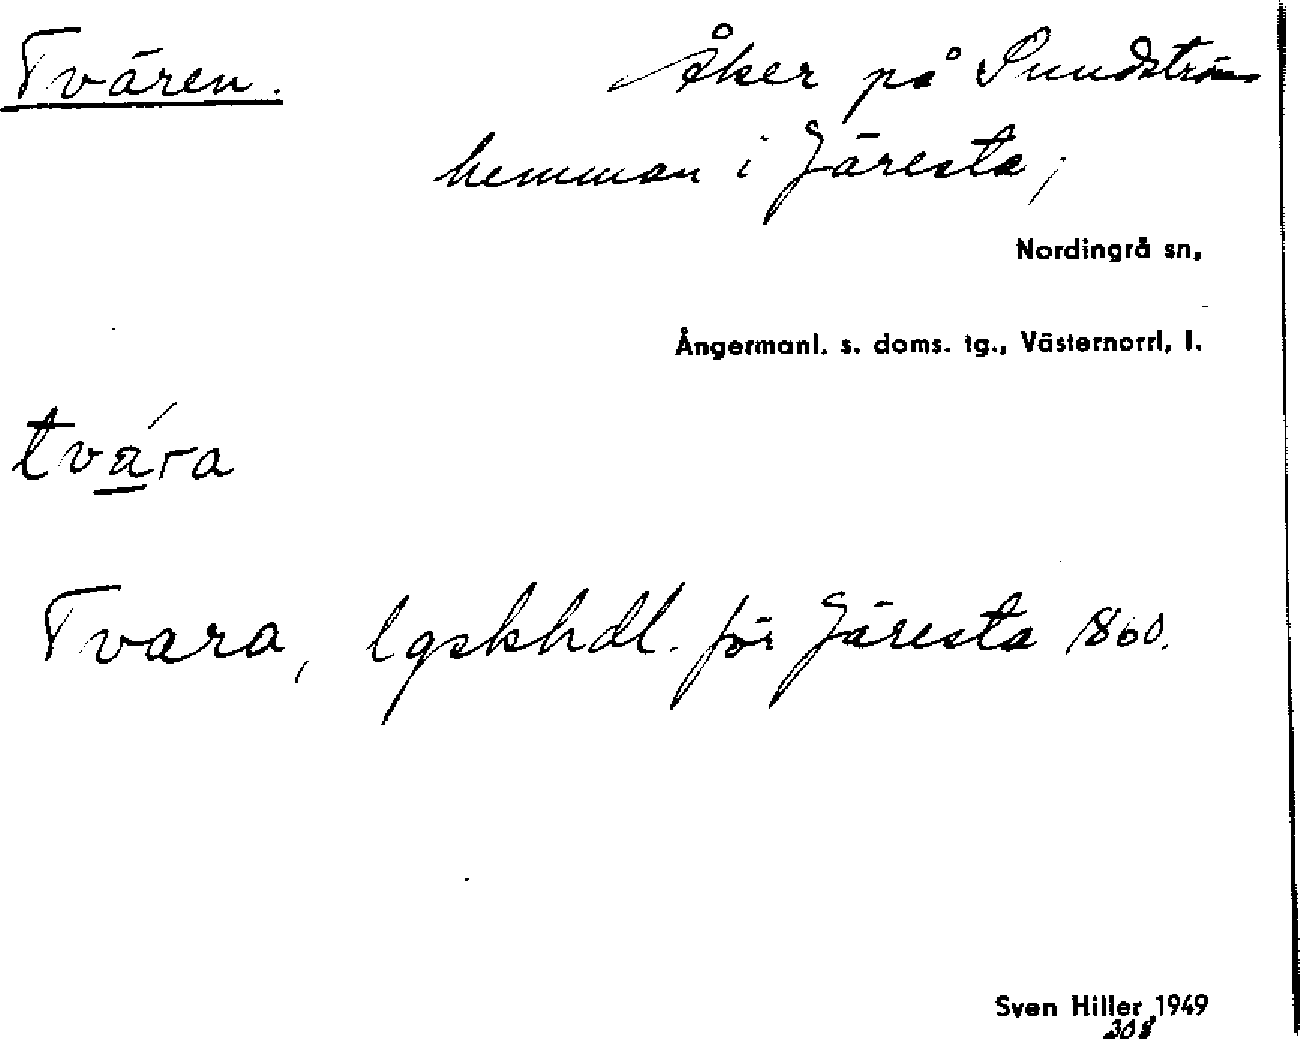 Tvären.
Åker på Sundströms
hemman i Järesta;
Nordingrå sn,
Ångermanl. s. doms. tg., Västernorrl. l.
tvára
Tvara, lgskhdl. för Järesta 1860.
Sven Hiller 1949
308